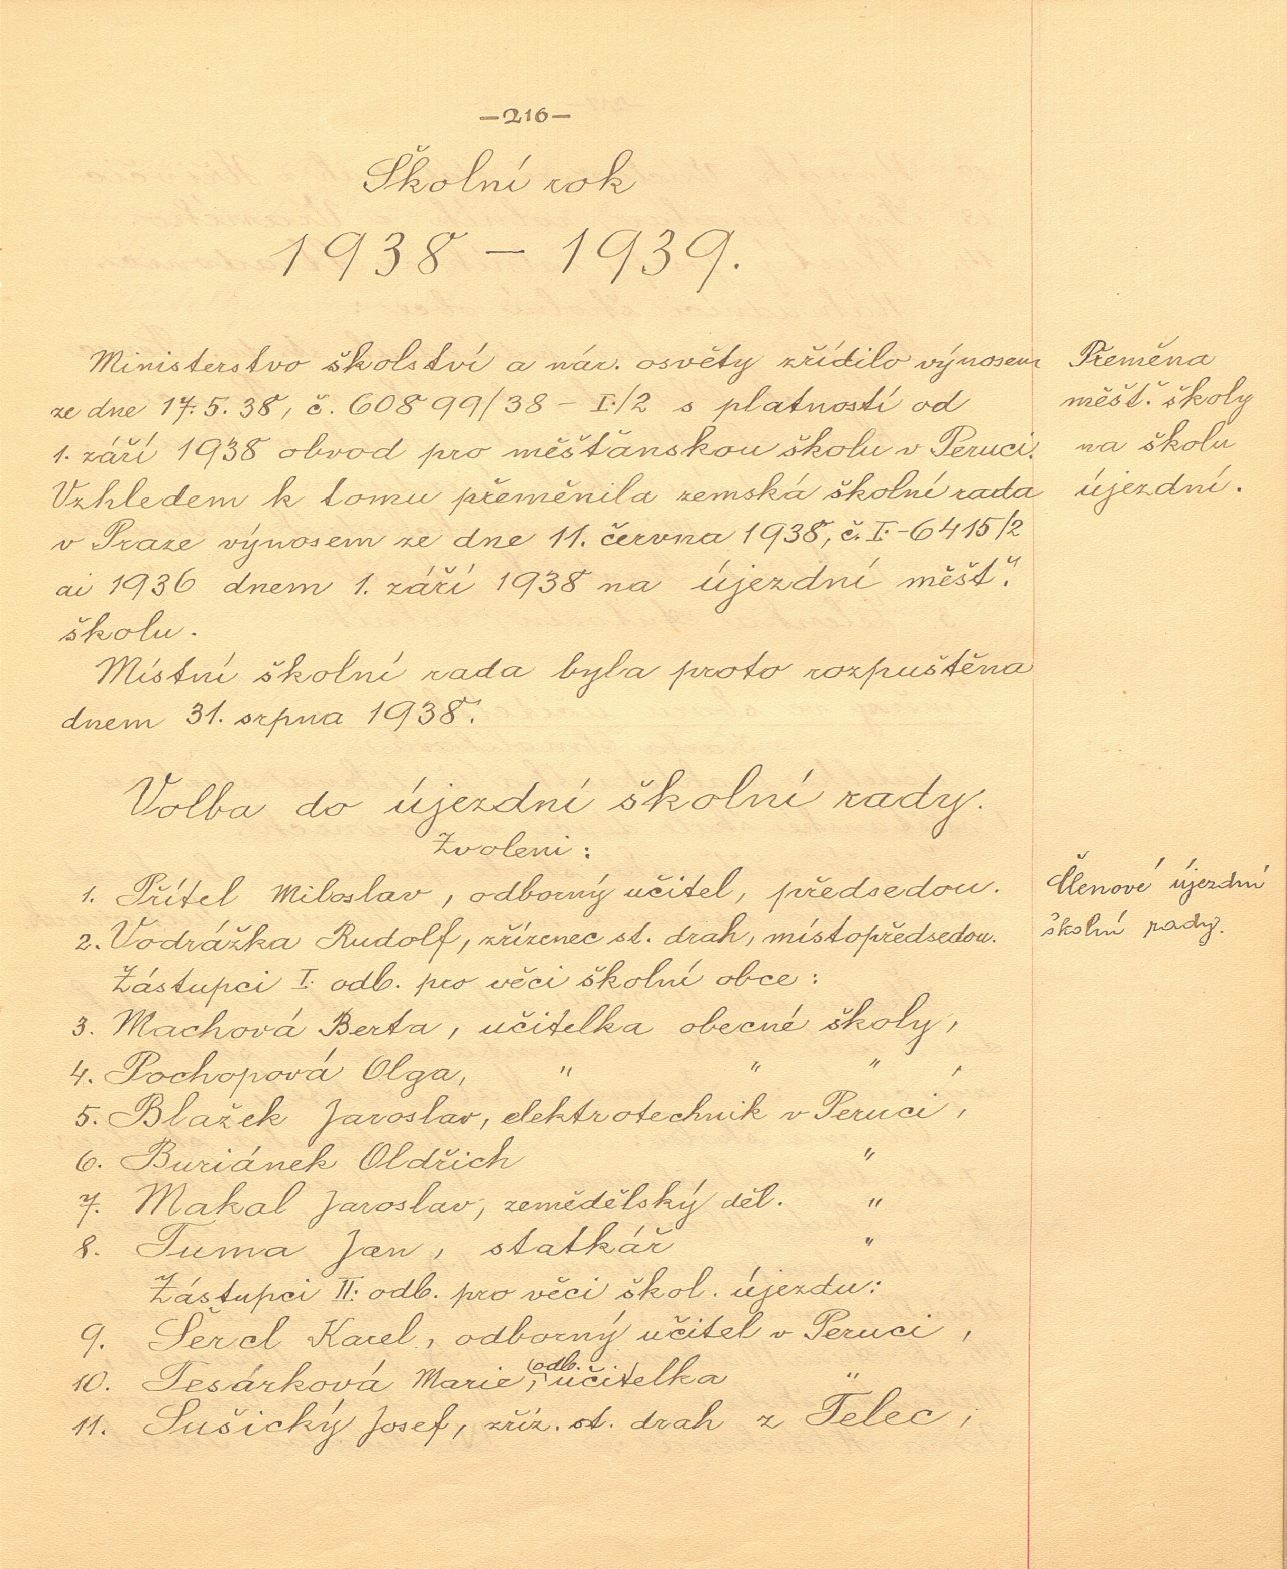 —216—
Školní rok
1938 — 1939.
Ministerstvo školství a nár. osvěty zřídilo výnosem
ze dne 17. 5. 38, č. 60899/38 - I./2 s platností od
1. září 1938 obvod pro měšťanskou školu v Peruci.
Vzhledem k tomu přeměnila zemská školní rada
v Praze výnosem ze dne 11. června 1938, č. I.-6415/2
ai 1936 dnem 1. září 1938 na újezdní měšť.
školu.
Místní školní rada byla proto rozpuštěna
dnem 31. srpna 1938.
Přeměna
měšť. školy
na školu
újezdní.
Volba do újezdní školní rady.
Zvoleni:
1. Přítel Miloslav, odborný učitel, předsedou.
2. Vodrážka Rudolf, zřízenec st. drah, místopředsedou.
Zástupci I. odb. pro věci školní obce:
3. Machová Berta, učitelka obecné školy,
4. Pochopová Olga, " " " ,
5. Blažek Jaroslav, elektrotechnik v Peruci,
6. Buriánek Oldřich "
7. Makal Jaroslav, zemědělský děl. "
8. Tuma Jan, statkář "
Zástupci II. odb. pro věci škol. újezdu:
9. Šercl Karel, odborný učitel v Peruci,
10. Tesárková Marie, odb. učitelka "
11. Sušický Josef, zříz. st. drah z Telec,
Členové újezdní
školní rady.